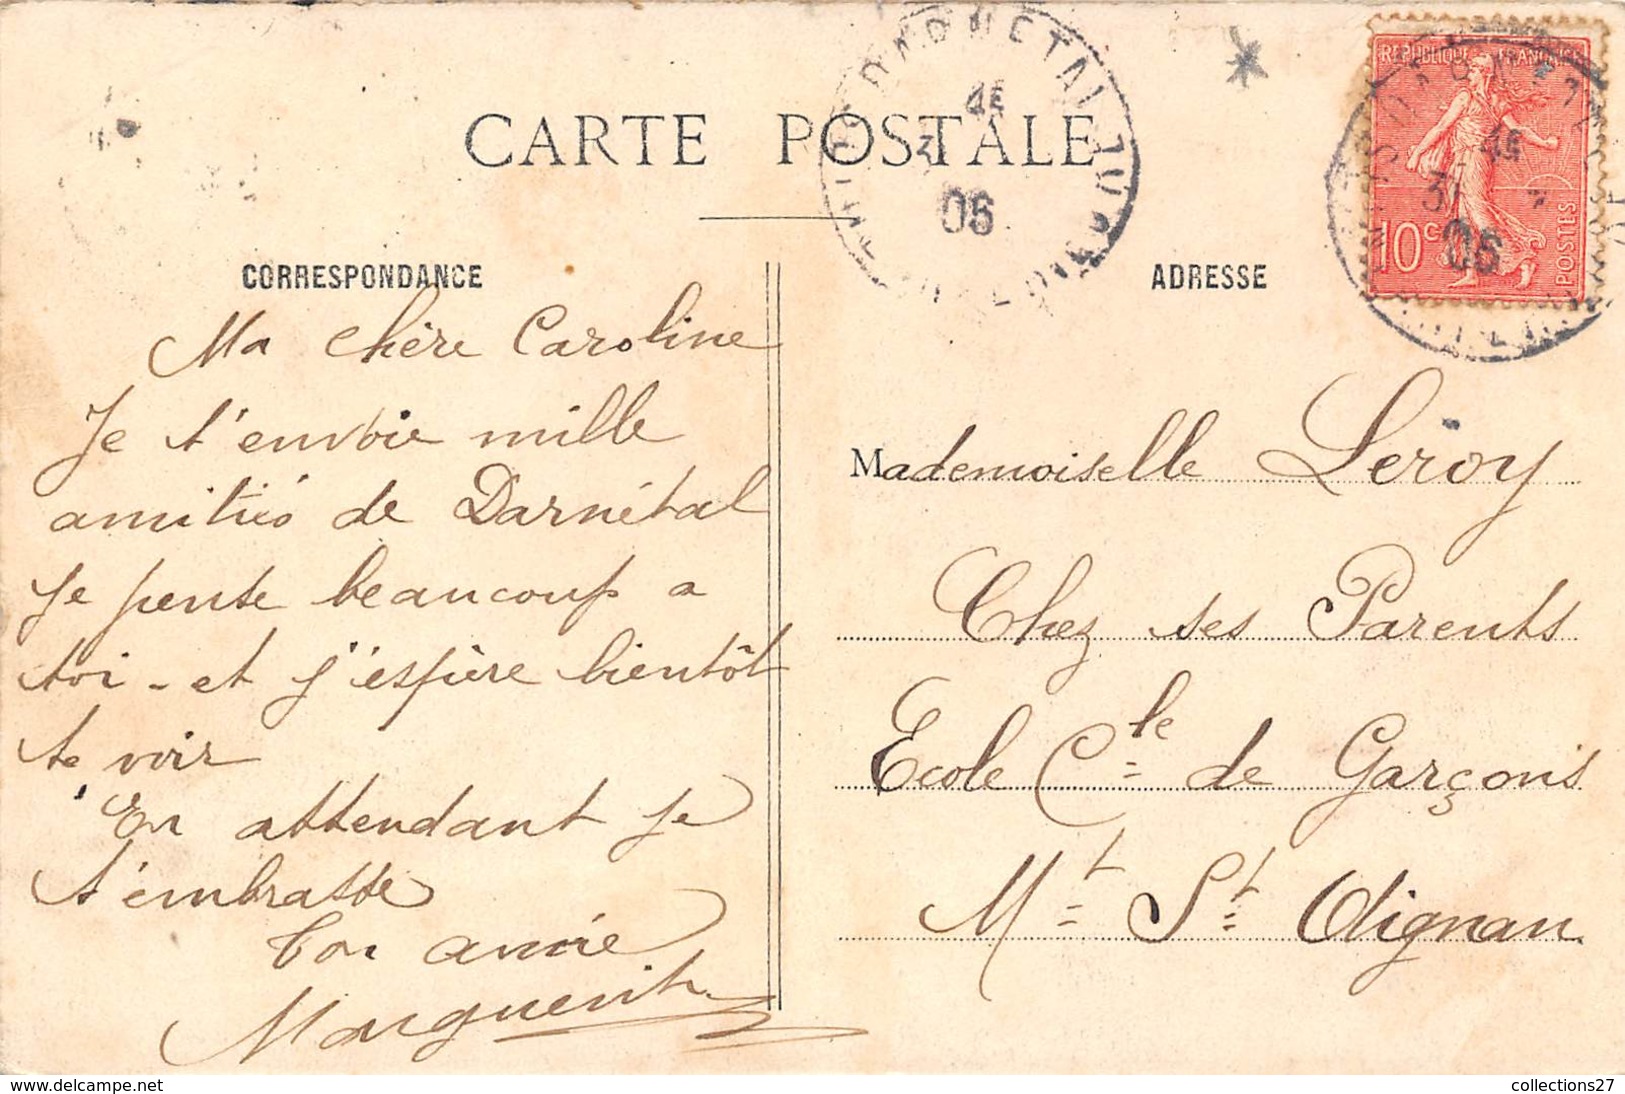 CARTE POSTALE
CORRESPONDANCE
Ma chère Caroline
Je t'envoie mille
amitiés de Darnétal
Je pense beaucoup a
toi - et j'espère bientôt
te voir
En attendant je
t'embrasse
Ton amie
Marguerite
ADRESSE
REPUBLIQUE FRANÇAISE
10c
POSTES
DARNETAL
06
06
Mademoiselle Leroy
Chez ses Parents
Ecole Cle de Garçons
Mt St Aignan
collections27